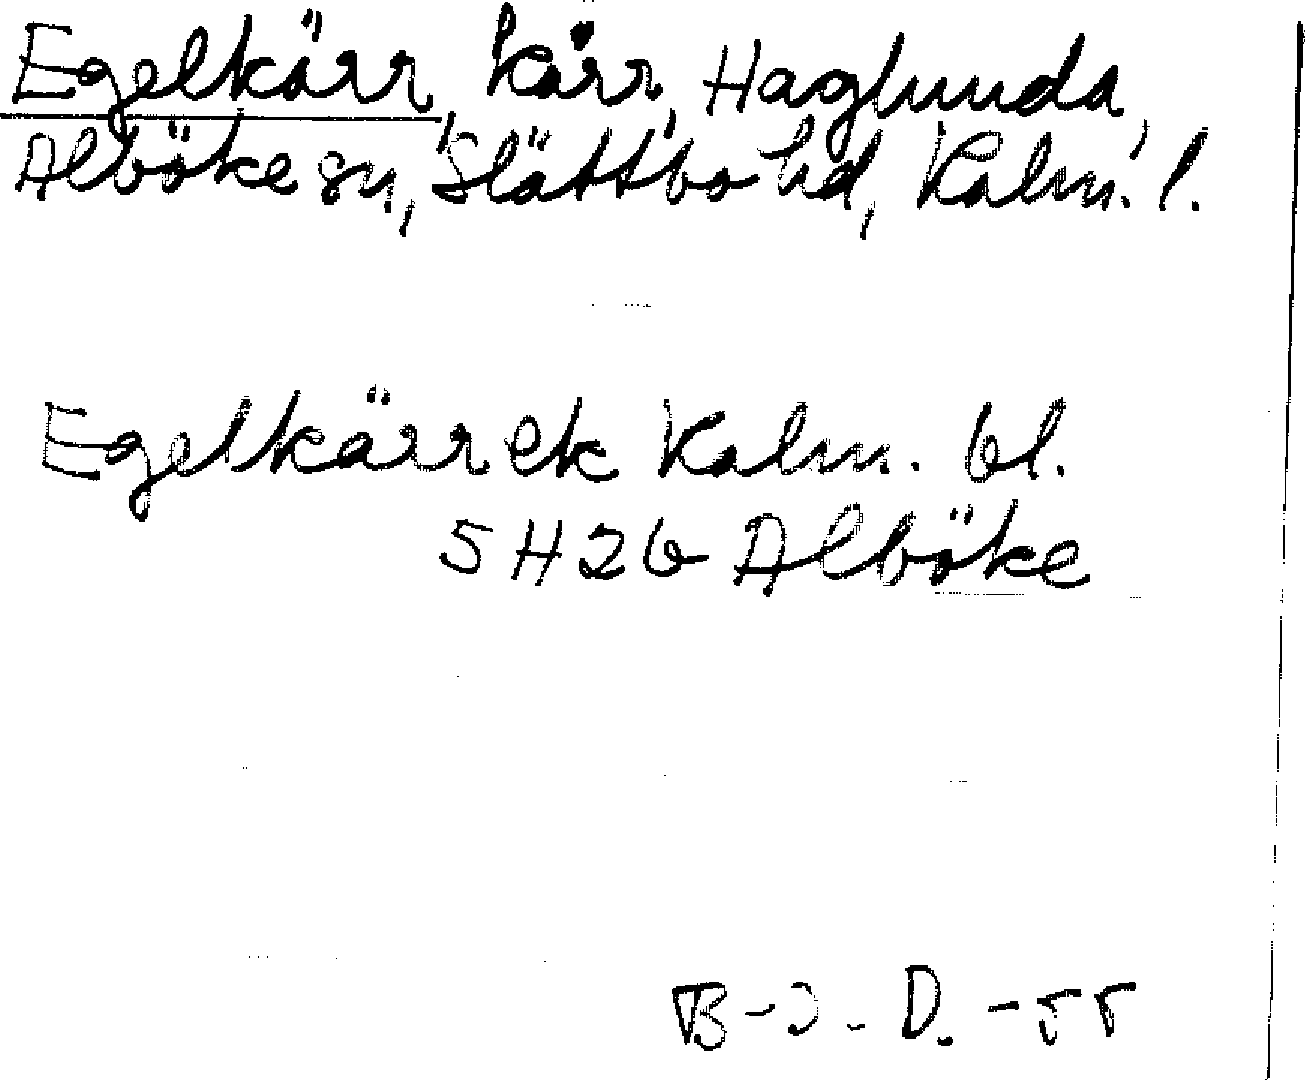 Egelkärr, kärr, Haglunda,
Alböke sn, Slättbo hd, Kalm. l.
Egelkärr ek Kalm. bl.
5H2b Alböke
B-J. D. -55